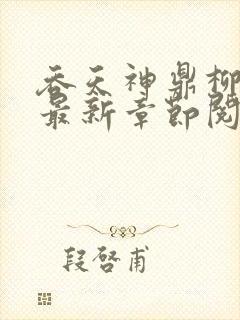 吞天神鼎柳
最新章节阅
段啓甫